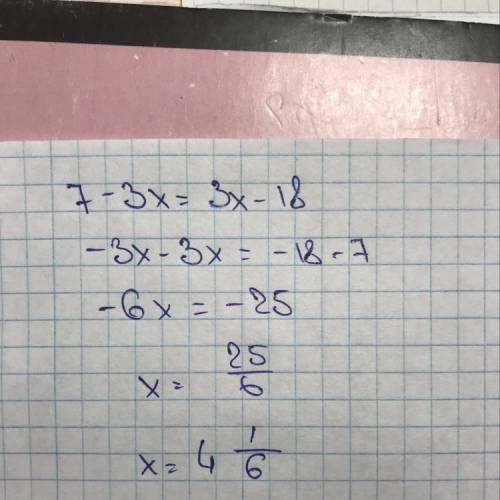 7 - 3x = 3x - 18
-3x - 3x = -18 - 7
-6x = -25
x = 25/6
x = 4 1/6